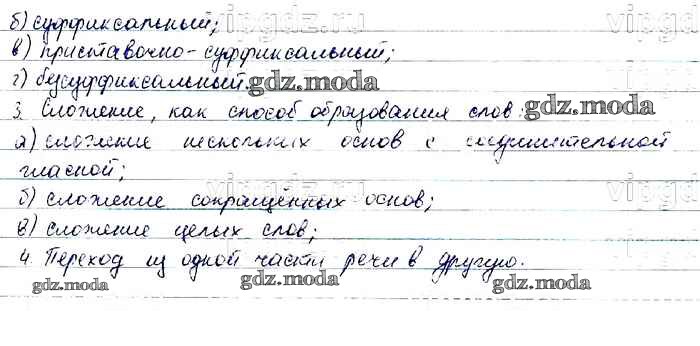 б) суффиксальный;
в) приставочно-суффиксальный;
г) бессуффиксальный.
3. Сложение, как способ образования слов:
а) сложение нескольких основ с соединительной
гласной;
б) сложение сокращённых основ;
в) сложение целых слов;
4. Переход из одной части речи в другую.
vipgdz.ru
gdz.moda
gdz.moda
gdz.moda
gdz.moda
gdz.moda